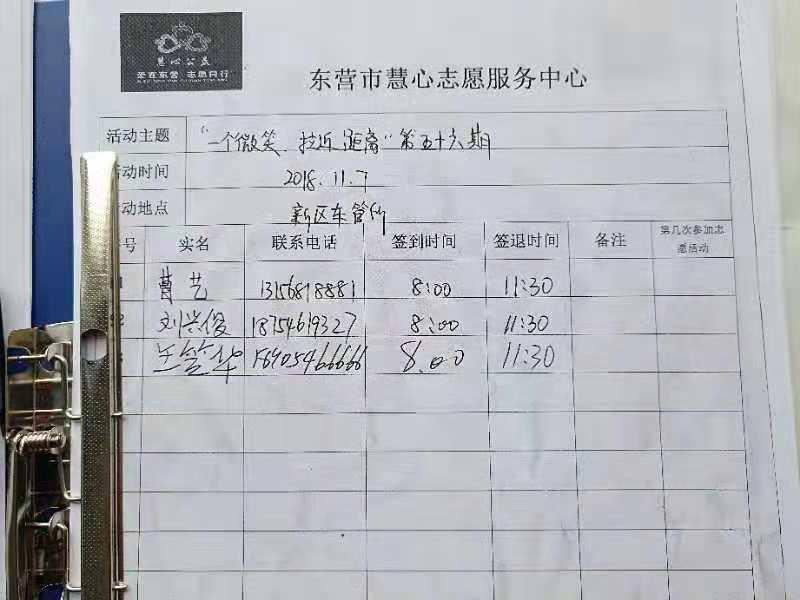 慧心公益
爱在东营 志愿同行
东营市慧心志愿服务中心
活动主题 "一个微笑、拉近距离"第五十六期
活动时间 2018.11.7
动地点 新区车管所
号 实名 联系电话 签到时间 签退时间 备注 第几次参加志
愿活动
1 曹艺 13156818881 8:00 11:30
2 刘兴俊 18754619327 8:00 11:30
8.00 11:30